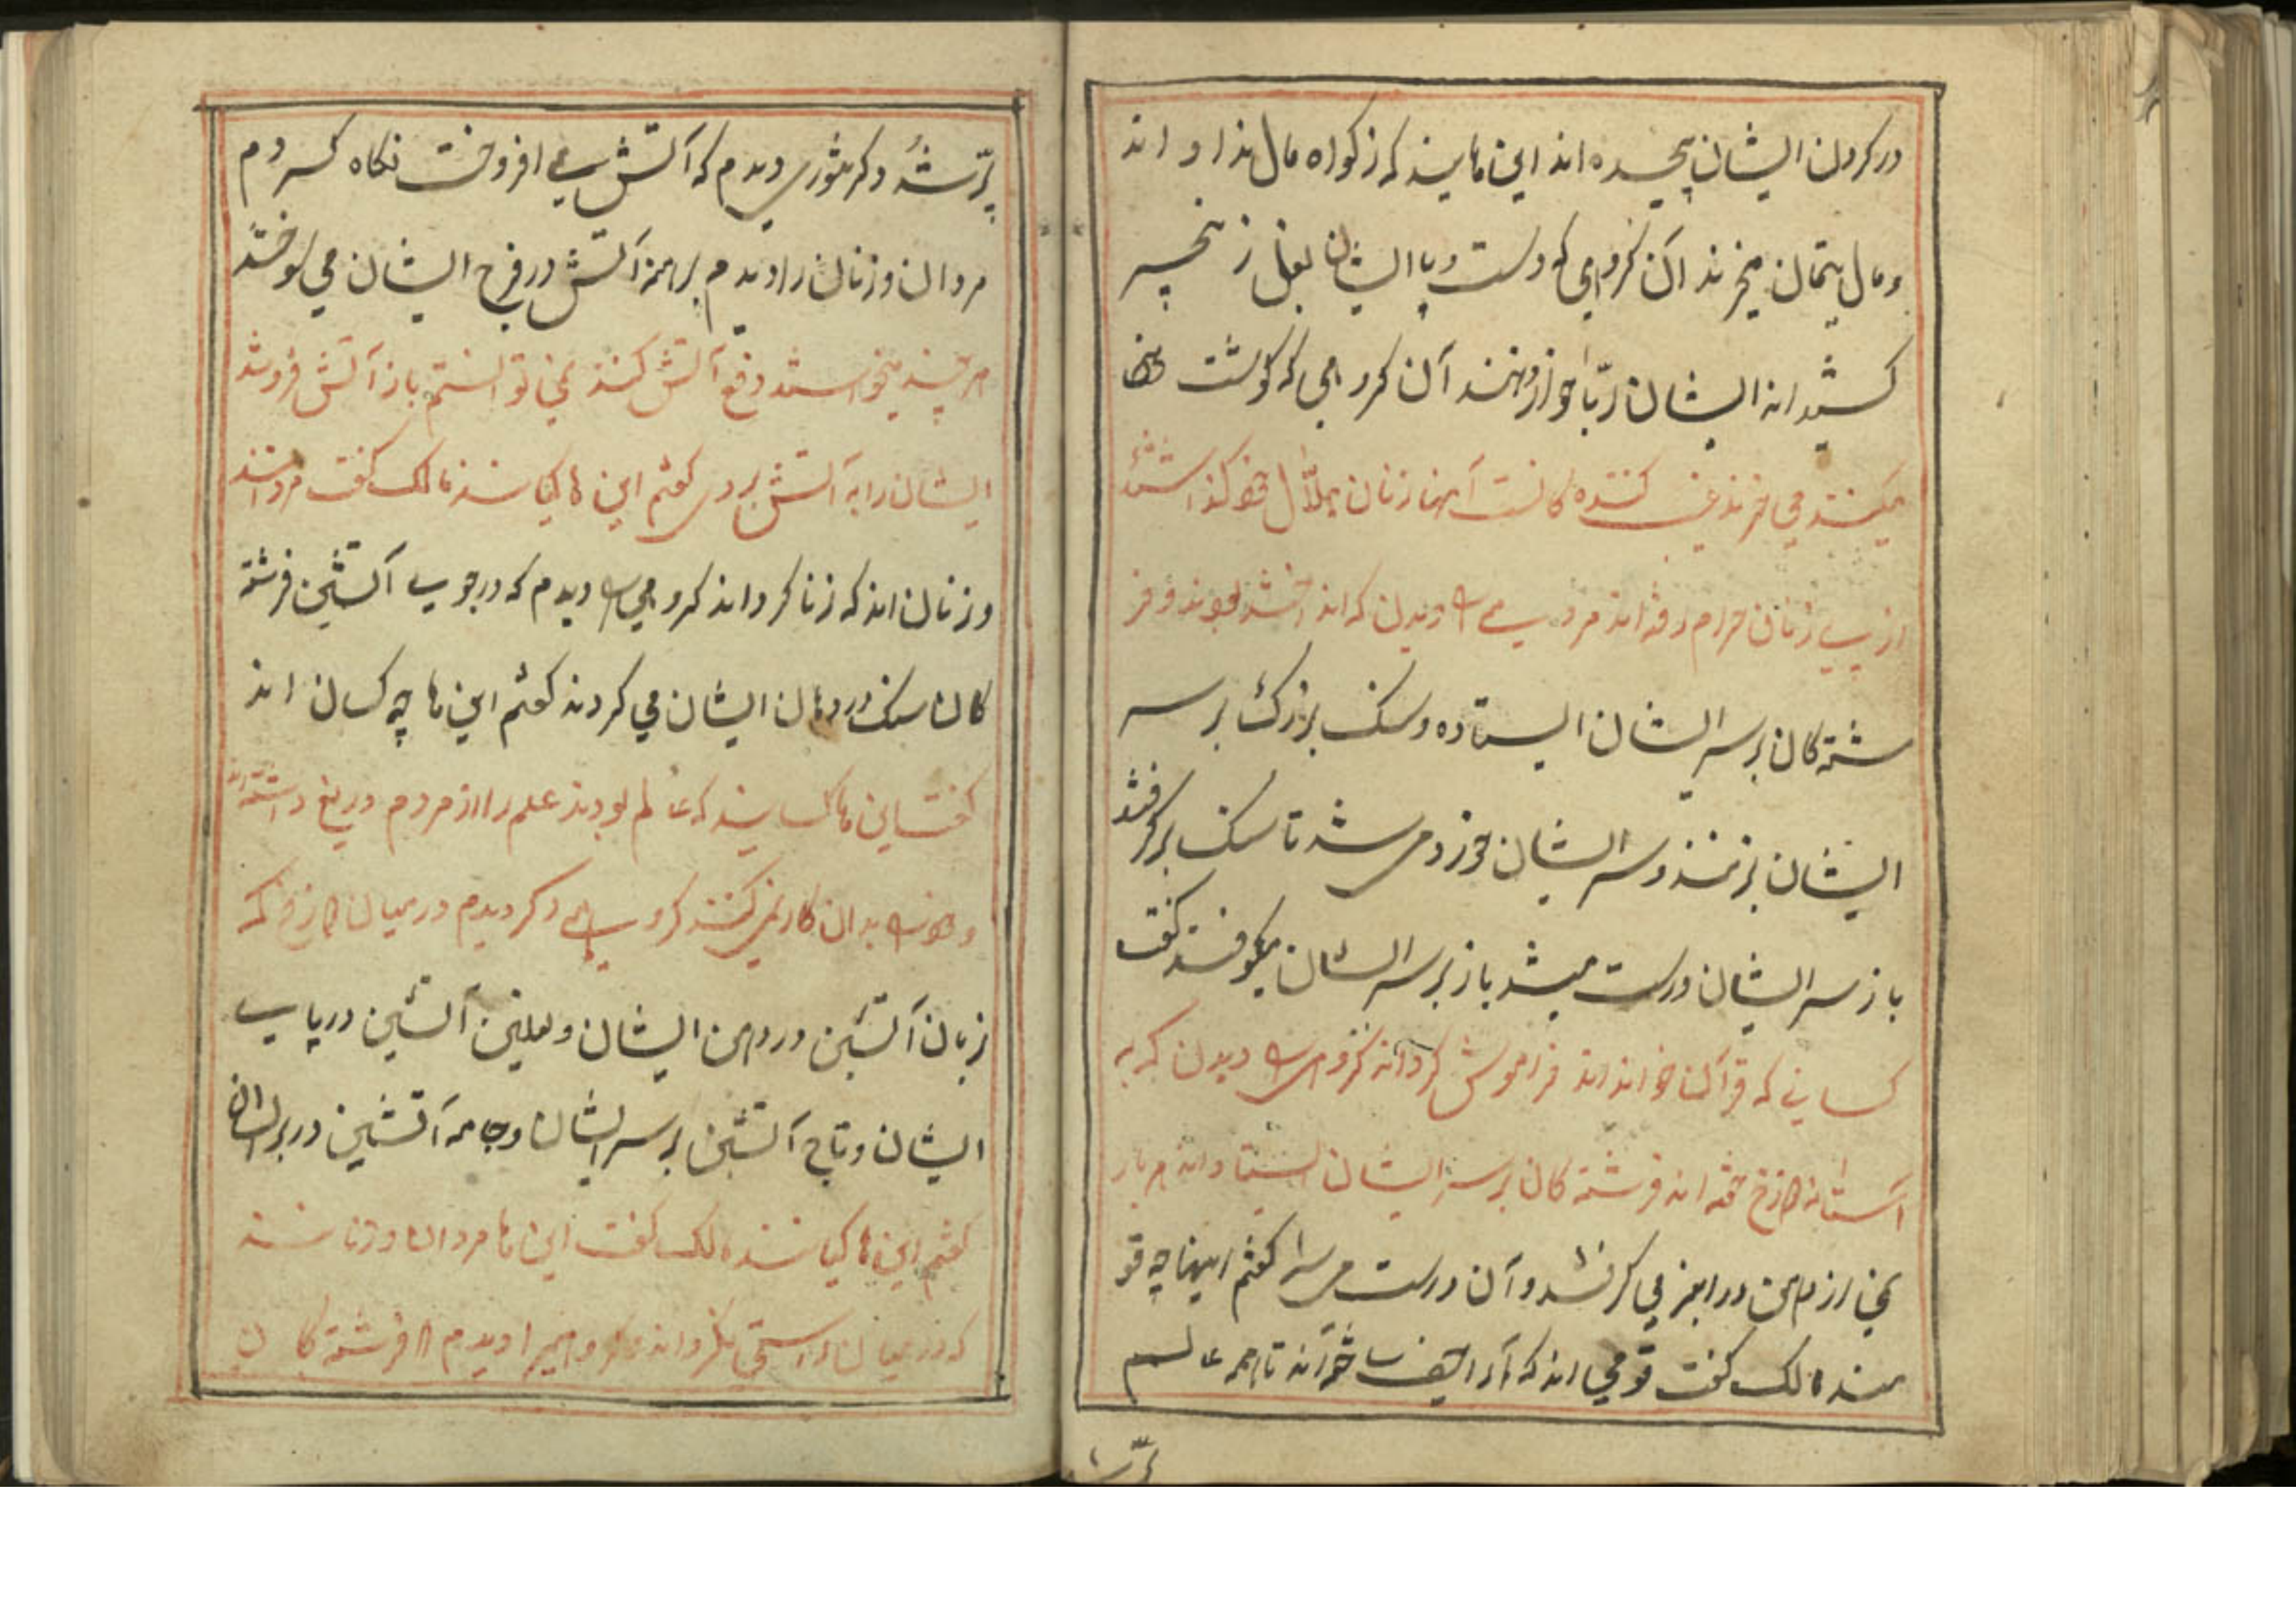 در کردن ایشان پیچیده اند این ها یند که زکواه مال نداو اند
و مال یتیمان میخرند آن کروهی که دست و پا ایشان بغل زنجیر
کشیده اند ایشان ربّا خوار وهند آن کروهی که کوشت
میکنند می خرند غیبت کننده کانست آنها زنان حلال خود کذاشته
از پی زنان حرام رفته اند دیدن که اند بودند و فر
شته کان بر سر ایشان ایستاده و سنک بزرک بر سر
ایشان بزنند و سر ایشان خورد می شد تا سنک بر کرفتند
باز سر ایشان درست میشد باز بر سر ایشان میکوفتند کفت
کسانی که قرآن خوانداند فراموش کرداند کروهی دیدن که به
آستانه دوزخ خفته اند فرشته کان بر سر ایشان ایستاداند هر بار
از دهن می کرفتند و آن درست می شد کفتم اینها چه قو
مند مالک کفت قومی اند که تا همه عالم
پرّ شد
پرّ شد دکر تنوری دیدم که آتش می افروخت نکاه کردم
مردان و زنان را دیدم برهنه آتش در فرج ایشان می سوختند
هر چند میخواستند دفع آتش کنند نمی توانستم باز آتش فرو شد
ایشان را به آتش بردی کفتم این ها کیانند مالک کفت مردانند
و زنان اند که زنا کرداند کروهی دیدم که در چوب آتشین فرشته
کان سنک در دهان ایشان می کردند کفتم این ها چه کسان اند
کفت این ها کسانیند که عالم بودند علم را از مردم دریغ داشته اند
و خود بدان کار نمی کنند کروهی دکر دیدم در میان دوزخ که
زبان آتشین در دهن ایشان و نعلین آتشین در پای
ایشان و تاج آتشین بر سر ایشان و جامه آتشین در بر ایشان
کفتم این ها کیانند مالک کفت این ها مردان و زنانند
که در میان راستی نکرداند کروهی را دیدم فرشته کان